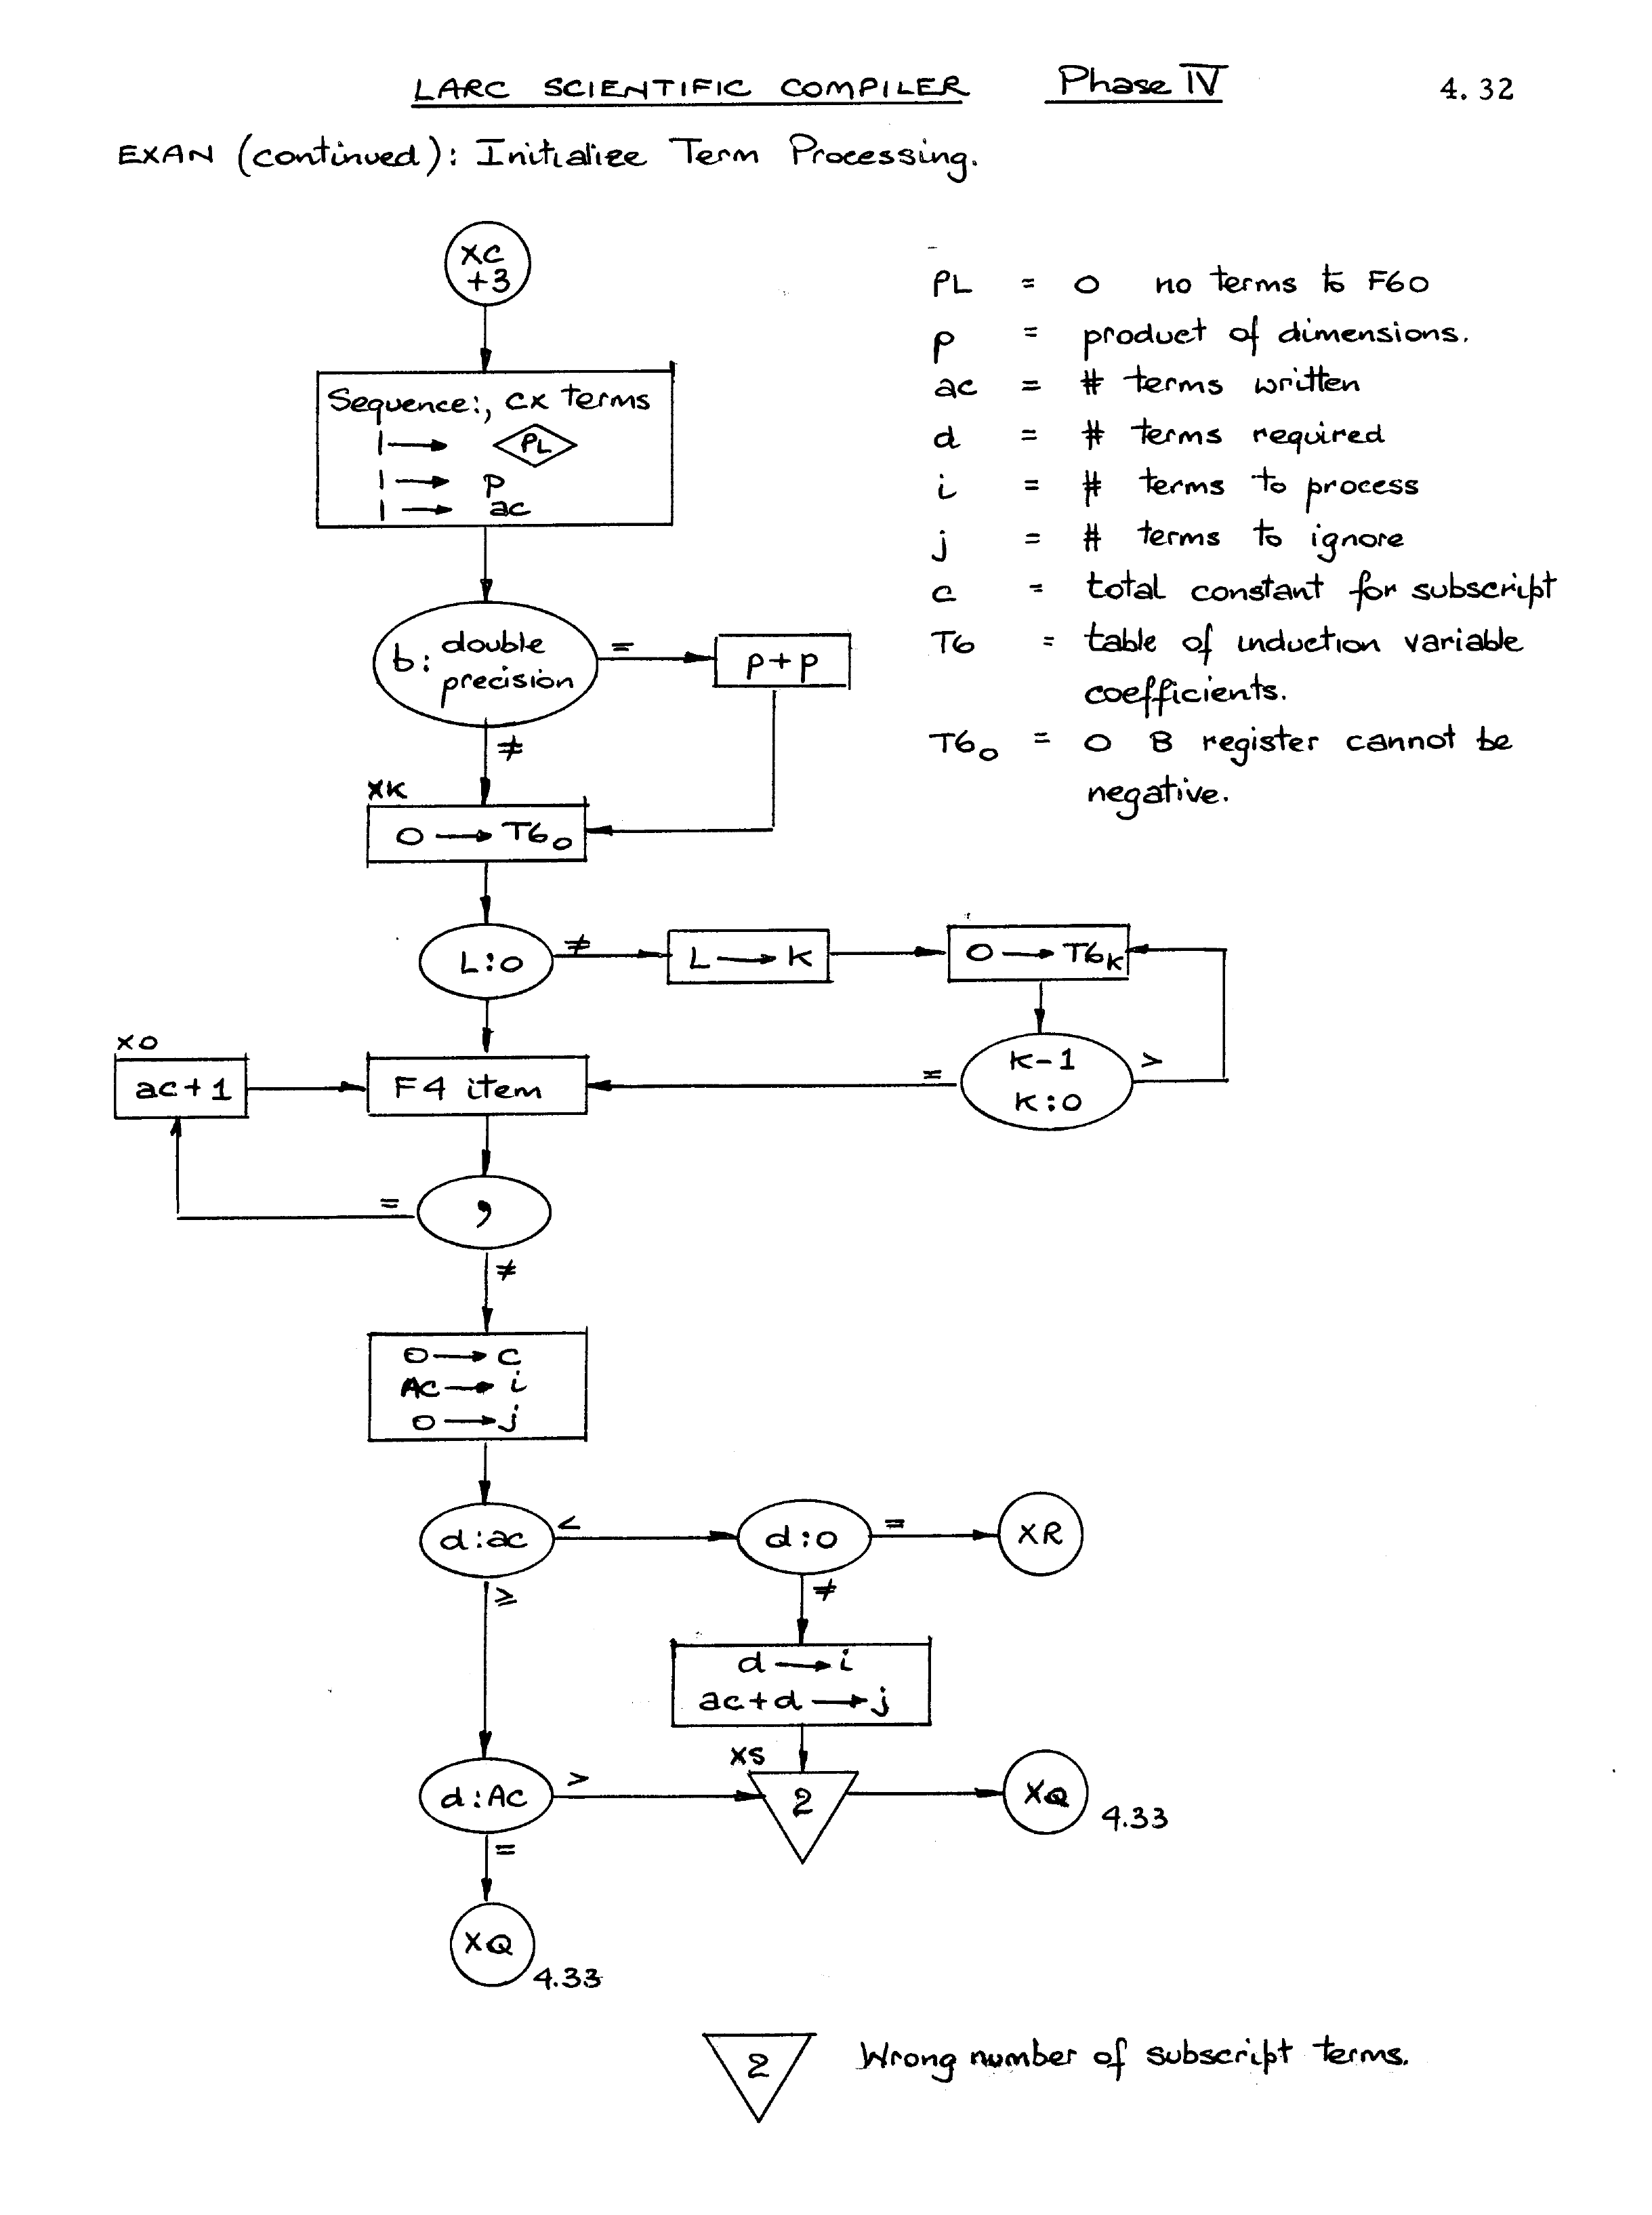 LARC SCIENTIFIC COMPILER Phase IV 4.32
EXAN (continued): Initialize Term Processing.
XC
+3
PL = 0 no terms to F60
p = product of dimensions.
ac = # terms written
d = # terms required
i = # terms to process
j = # terms to ignore
c = total constant for subscript
T6 = table of induction variable
coefficients.
T6₀ = 0 B register cannot be
negative.
Sequence:, cx terms
1 → PL
1 → p
1 → ac
b: double
precision
=
p+p
≠
XK
0 → T6₀
L:0
≠
L → K
0 → T6K
K-1
K:0
>
=
XO
ac+1
F4 item
,
=
≠
0 → c
AC → i
0 → j
d:ac
<
d:0
=
XR
≥
≠
d → i
ac+d → j
d:AC
>
XS
2
XQ
4.33
=
XQ
4.33
2 Wrong number of subscript terms.